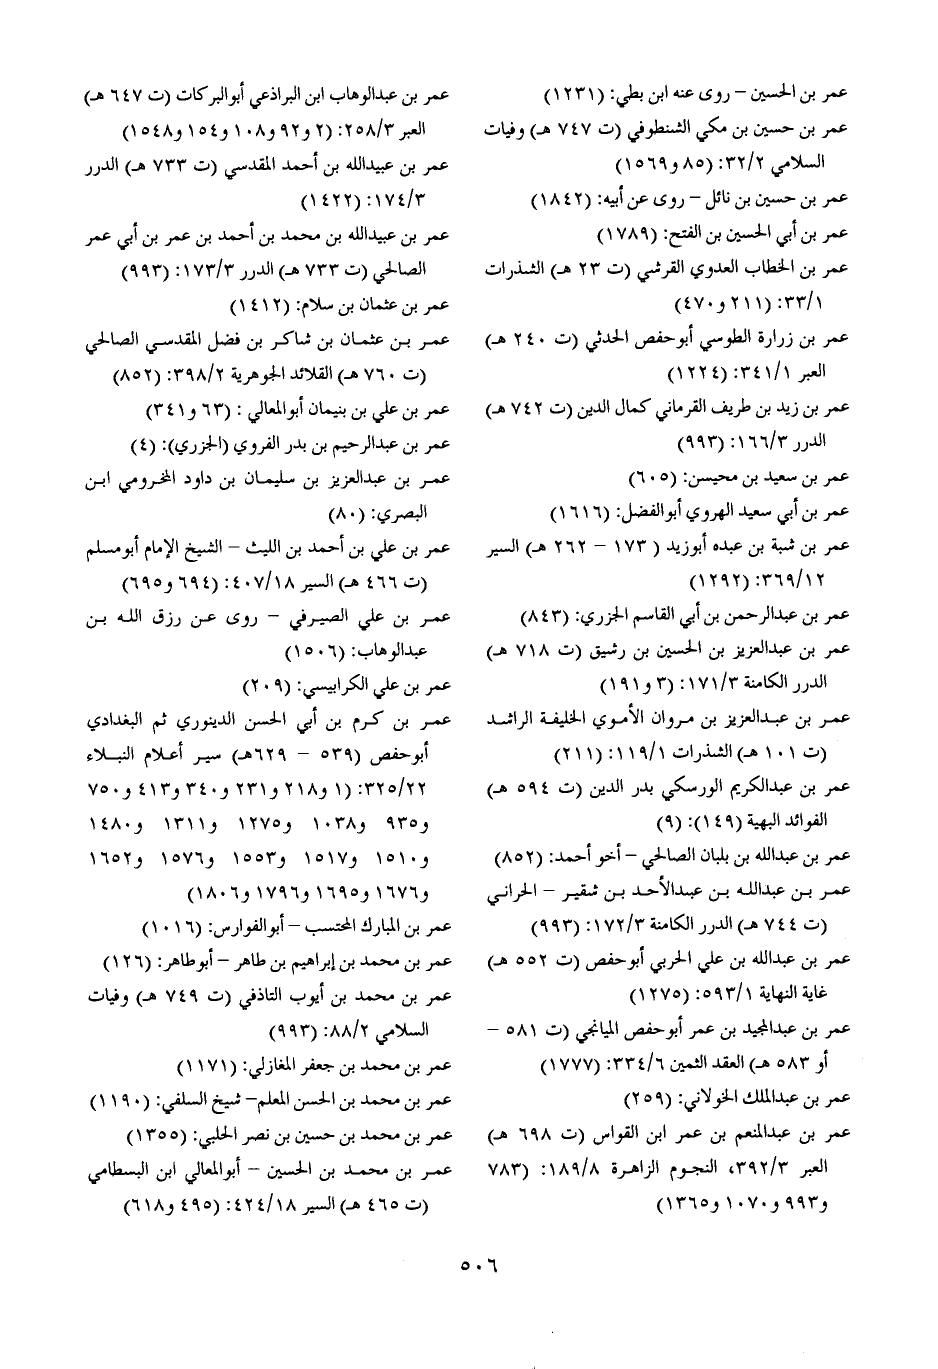 عمر بن الحسين – روى عنه ابن بطي: (١٢٣١)
عمر بن حسين بن مكي الشنطوفي (ت ٧٤٧ هـ) وفيات
السلامي ٣٢/٢: (٨٥ و١٥٦٩)
عمر بن حسين بن نائل – روى عن أبيه: (١٨٤٢)
عمر بن أبي الحسين بن الفتح: (١٧٨٩)
عمر بن الخطاب العدوي القرشي (ت ٢٣ هـ) الشذرات
٣٣/١: (٢١١ و٤٧٠)
عمر بن زرارة الطوسي أبوحفص الحدثي (ت ٢٤٠ هـ)
العبر ٣٤١/١: (١٢٢٤)
عمر بن زيد بن طريف القرماني كمال الدين (ت ٧٤٢ هـ)
الدرر ١٦٦/٣: (٩٩٣)
عمر بن سعيد بن محيسن: (٦٠٥)
عمر بن أبي سعيد الهروي أبوالفضل: (١٦١٦)
عمر بن شبة بن عبده أبوزيد ( ١٧٣ – ٢٦٢ هـ) السير
٣٦٩/١٢: (١٢٩٢)
عمر بن عبدالرحمن بن أبي القاسم الجزري: (٨٤٣)
عمر بن عبدالعزيز بن الحسين بن رشيق (ت ٧١٨ هـ)
الدرر الكامنة ١٧١/٣: (٣ و١٩١)
عمر بن عبدالعزيز بن مروان الأموي الخليفة الراشد
(ت ١٠١ هـ) الشذرات ١١٩/١: (٢١١)
عمر بن عبدالكريم الورسكي بدر الدين (ت ٥٩٤ هـ)
الفوائد البهية (١٤٩): (٩)
عمر بن عبدالله بن بلبان الصالحي – أخو أحمد: (٨٥٢)
عمر بن عبدالله بن عبدالأحد بن شقير – الحراني
(ت ٧٤٤ هـ) الدرر الكامنة ١٧٢/٣: (٩٩٣)
عمر بن عبدالله بن علي الحربي أبوحفص (ت ٥٥٢ هـ)
غاية النهاية ٥٩٣/١: (١٢٧٥)
عمر بن عبدالمجيد بن عمر أبوحفص الميانجي (ت ٥٨١ –
أو ٥٨٣ هـ) العقد الثمين ٣٣٤/٦: (١٧٧٧)
عمر بن عبدالملك الخولاني: (٢٥٩)
عمر بن عبدالمنعم بن عمر ابن القواس (ت ٦٩٨ هـ)
العبر ٣٩٢/٣، النجوم الزاهرة ١٨٩/٨: (٧٨٣
و٩٩٣ و١٠٧٠ و١٣٦٥)
عمر بن عبدالوهاب ابن البراذعي أبوالبركات (ت ٦٤٧ هـ)
العبر ٢٥٨/٣: (٢ و٩٢ و١٠٨ و١٥٤ و١٥٤٨)
عمر بن عبيدالله بن أحمد المقدسي (ت ٧٣٣ هـ) الدرر
١٧٤/٣: (١٤٢٢)
عمر بن عبيدالله بن محمد بن أحمد بن عمر بن أبي عمر
الصالحي (ت ٧٣٣ هـ) الدرر ١٧٣/٣: (٩٩٣)
عمر بن عثمان بن سلام: (١٤١٢)
عمر بن عثمان بن شاكر بن فضل المقدسي الصالحي
(ت ٧٦٠ هـ) القلائد الجوهرية ٣٩٨/٢: (٨٥٢)
عمر بن علي بن بنيمان أبوالمعالي : (٦٣ و٣٤١)
عمر بن عبدالرحيم بن بدر الفروي (الجزري): (٤)
عمر بن عبدالعزيز بن سليمان بن داود المخرومي ابن
البصري: (٨٠)
عمر بن علي بن أحمد بن الليث – الشيخ الإمام أبومسلم
(ت ٤٦٦ هـ) السير ٤٠٧/١٨: (٦٩٤ و٦٩٥)
عمر بن علي الصيرفي – روى عن رزق الله بن
عبدالوهاب: (١٥٠٦)
عمر بن علي الكرابيسي: (٢٠٩)
عمر بن كرم بن أبي الحسن الدينوري ثم البغدادي
أبوحفص (٥٣٩ – ٦٢٩هـ) سير أعلام النبلاء
٣٢٥/٢٢: (١ و٢١٨ و٢٣١ و٣٤٠ و٤١٣ و٧٥٠
و٩٣٥ و١٠٣٨ و١٢٧٥ و١٣١١ و١٤٨٠
و١٥١٠ و١٥١٧ و١٥٥٣ و١٥٧٦ و١٦٥٢
و١٦٧٦ و١٦٩٥ و١٧٩٦ و١٨٠٦)
عمر بن المبارك المحتسب – أبوالفوارس: (١٠١٦)
عمر بن محمد بن إبراهيم بن طاهر – أبوطاهر: (١٢٦)
عمر بن محمد بن أيوب التاذفي (ت ٧٤٩ هـ) وفيات
السلامي ٨٨/٢: (٩٩٣)
عمر بن محمد بن جعفر المغازلي: (١١٧١)
عمر بن محمد بن الحسن المعلم– شيخ السلفي: (١١٩٠)
عمر بن محمد بن حسين بن نصر الحلبي: (١٣٥٥)
عمر بن محمد بن الحسين – أبوالمعالي ابن البسطامي
(ت ٤٦٥ هـ) السير ٤٢٤/١٨: (٤٩٥ و٦١٨)
٥٠٦